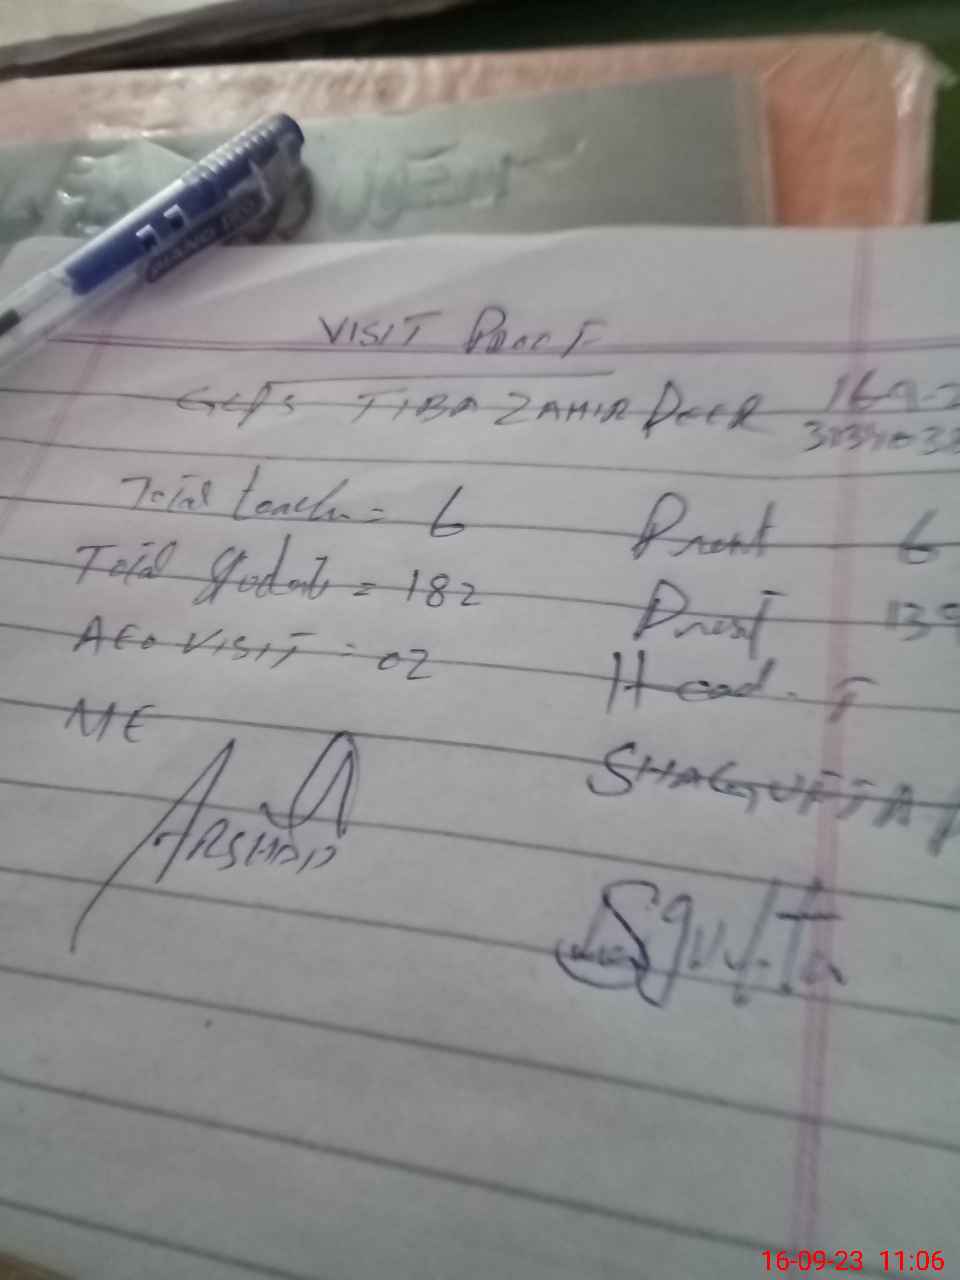 سکول
VISIT Proof
GGPS TIBA ZAHIR PEER 16-9-2
Total teach = 6 Prent 6
Total Student = 182 Prest 139
AEO VISIT = 02 Head. T
ME SHAGUFTA
ARSHAD
16-09-23 11:06